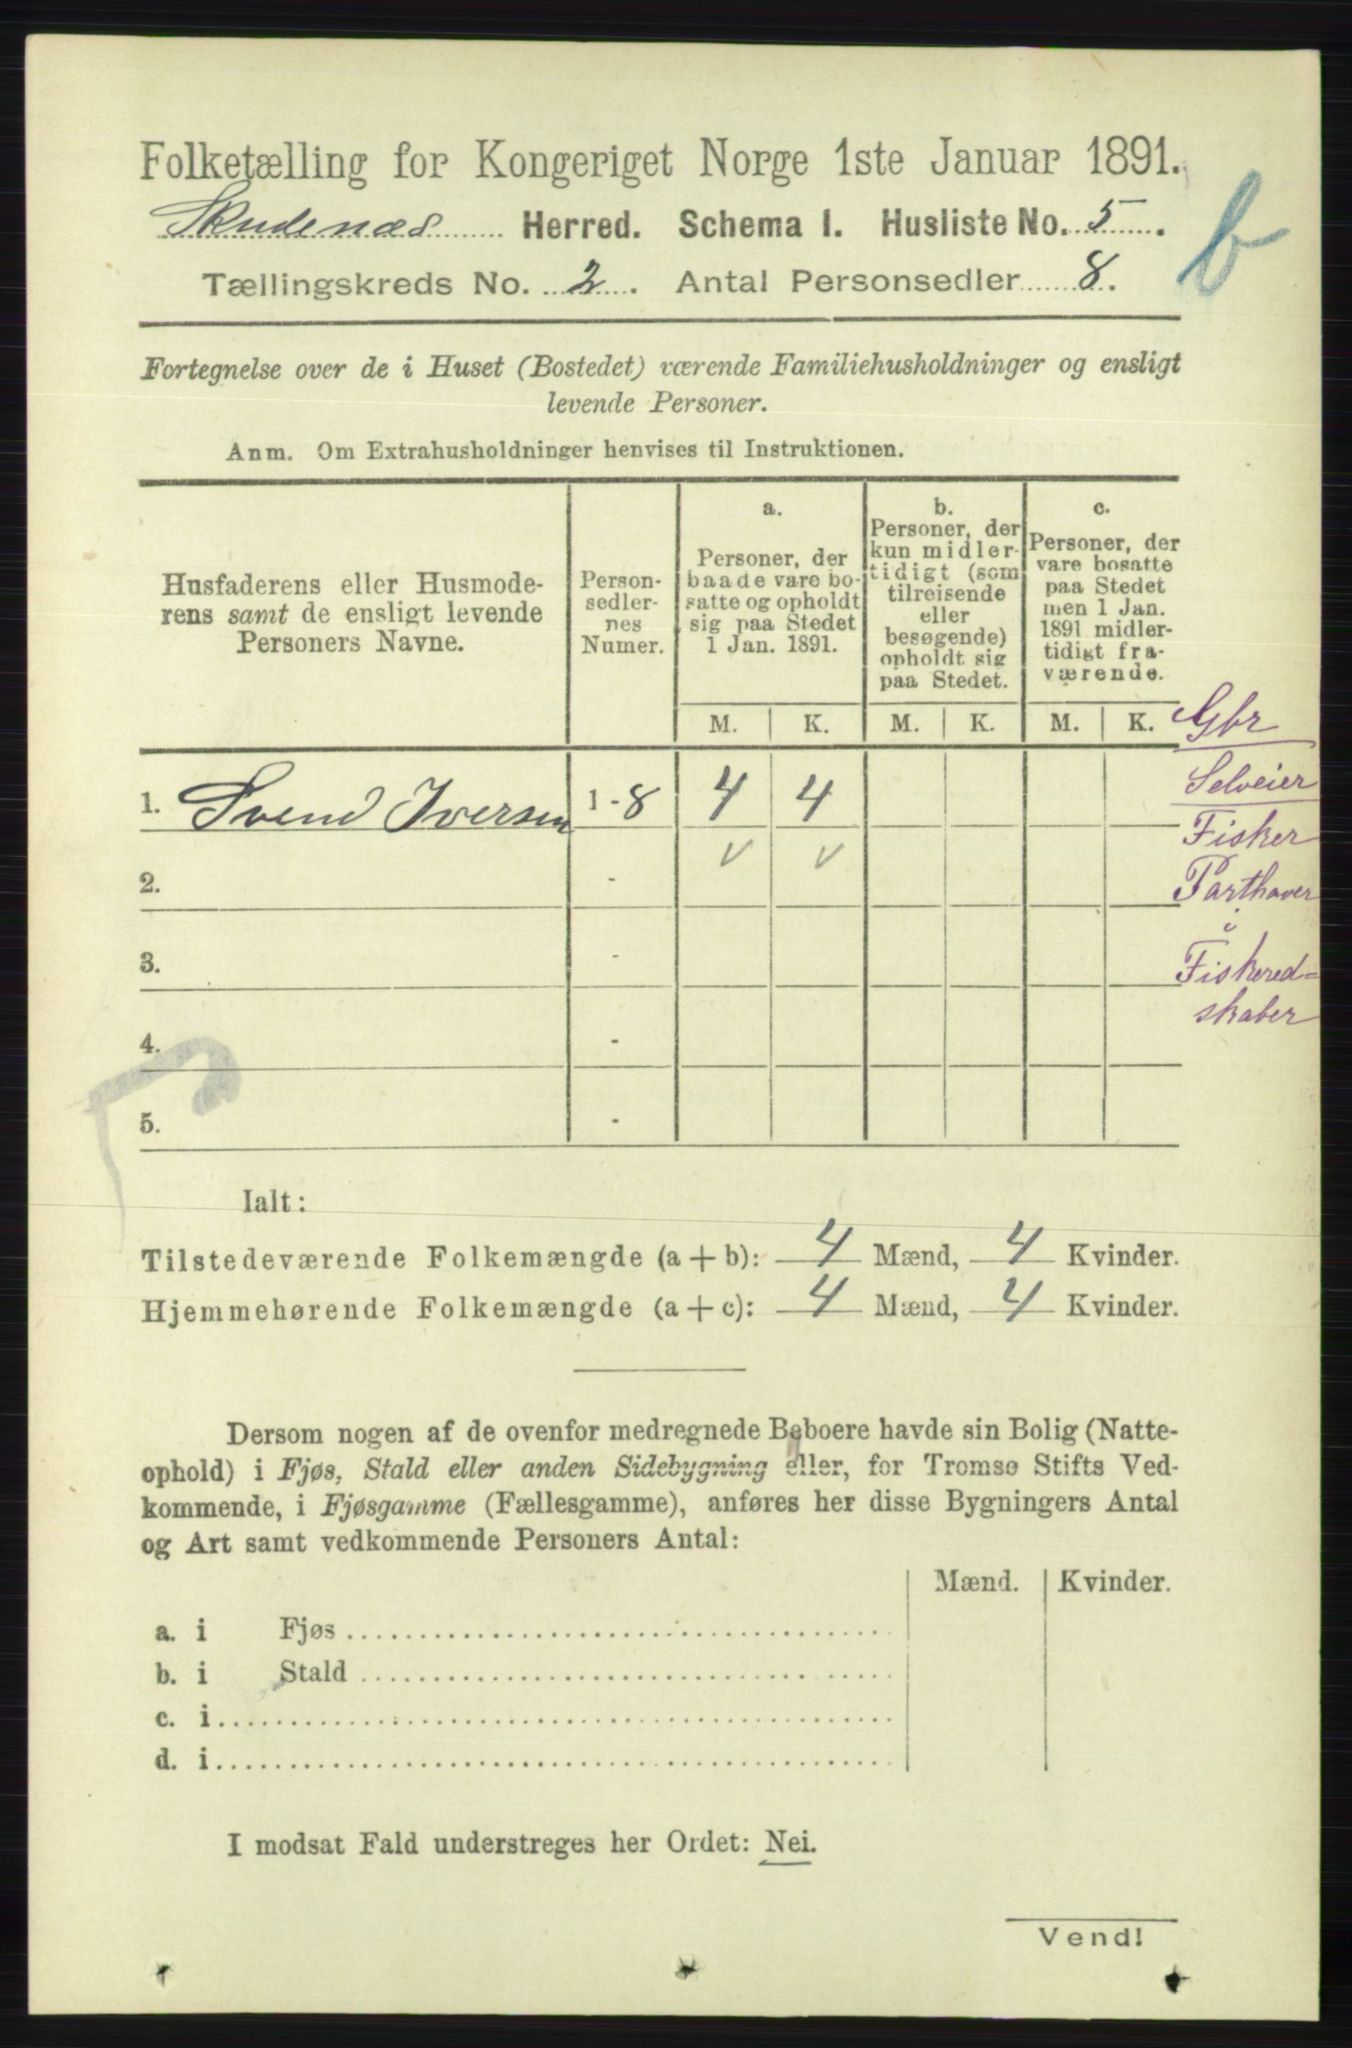 Folketælling for Kongeriget Norge 1ste Januar 1891.
Skudenæs Herred. Schema I. Husliste No. 5.
b
Tællingskreds No. 2. Antal Personsedler 8.
Fortegnelse over de i Huset (Bostedet) værende Familiehusholdninger og ensligt
levende Personer.
Anm. Om Extrahusholdninger henvises til Instruktionen.
Husfaderens eller Husmode-
rens samt de ensligt levende
Personers Navne.
Person-
sedler-
nes
Numer.
a.
Personer, der
baade vare bo-
satte og opholdt
sig paa Stedet
1 Jan. 1891.
b.
Personer, der
kun midler-
tidigt (som
tilreisende
eller
besøgende)
opholdt sig
paa Stedet.
c.
Personer, der
vare bosatte
paa Stedet
men 1 Jan.
1891 midler-
tidigt fra-
værende.
M. K. M. K. M. K.
Gbr
Selveier
Fisker
Parthaver
i
Fiskered-
skaber
1. Svend Iversen 1-8 4 4
v v
2. -
3. -
4. -
5. -
Ialt:
Tilstedeværende Folkemængde (a + b): 4 Mænd, 4 Kvinder.
Hjemmehørende Folkemængde (a + c): 4 Mænd, 4 Kvinder.
Dersom nogen af de ovenfor medregnede Beboere havde sin Bolig (Natte-
ophold) i Fjøs, Stald eller anden Sidebygning eller, for Tromsø Stifts Ved-
kommende, i Fjøsgamme (Fællesgamme), anføres her disse Bygningers Antal
og Art samt vedkommende Personers Antal:
Mænd. Kvinder.
a. i Fjøs
b. i Stald
c. i
d. i
I modsat Fald understreges her Ordet: Nei.
Vend!